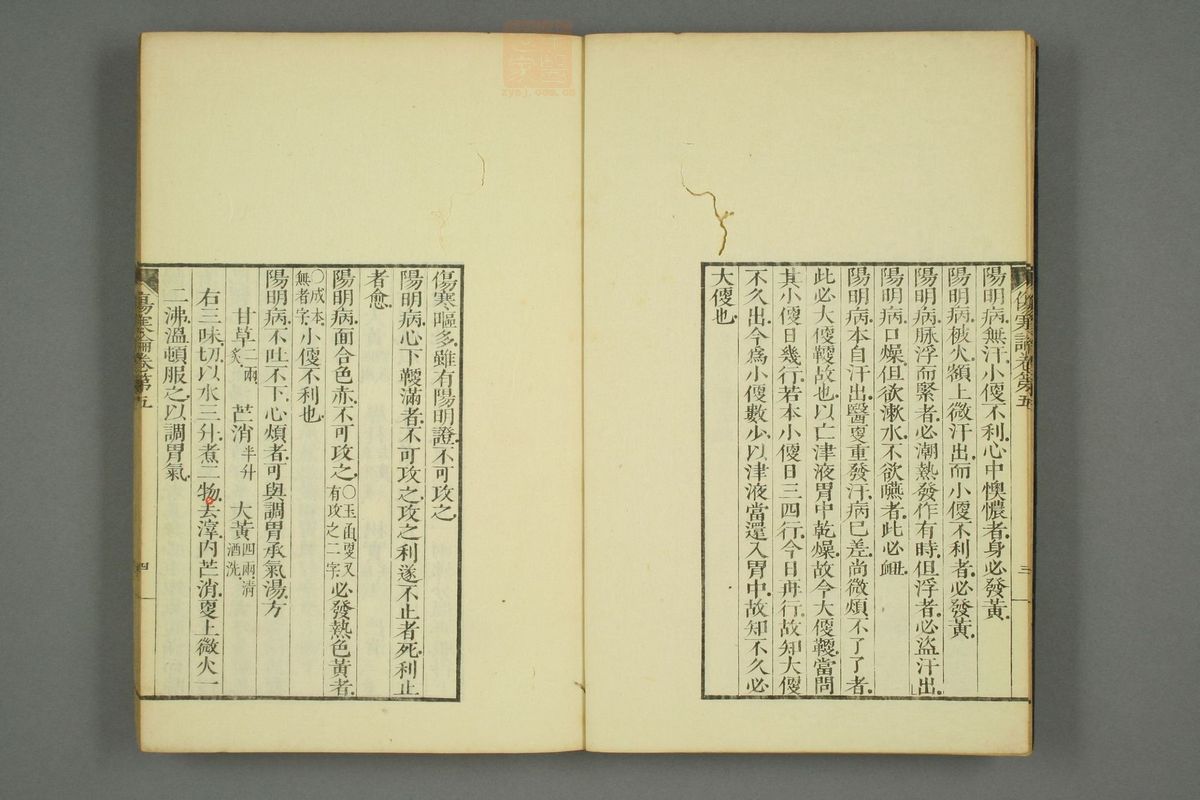 傷寒論卷第五
三
陽明病無汗小便不利心中懊憹者身必發黃
陽明病被火額上微汗出而小便不利者必發黃
陽明病脉浮而緊者必潮熱發作有時但浮者必盜汗出
陽明病口燥但欲漱水不欲嚥者此必衄
陽明病本自汗出醫更重發汗病已差尚微煩不了了者
此必大便鞕故也以亡津液胃中乾燥故令大便鞕當問
其小便日幾行若本小便日三四行今日再行故知大便
不久出今爲小便數少以津液當還入胃中故知不久必
大便也
傷寒嘔多雖有陽明證不可攻之
陽明病心下鞕滿者不可攻之攻之利遂不止者死利止
者愈
陽明病面合色赤不可攻之〇玉函更又有攻之二字必發熱色黃者
〇成本無者字小便不利也
陽明病不吐不下心煩者可與調胃承氣湯方
甘草二兩炙 芒消半升 大黃四兩清酒洗
右三味切以水三升煮二物去滓內芒消更上微火一
二沸溫頓服之以調胃氣
傷寒論卷第五
四
zysj.com.cn